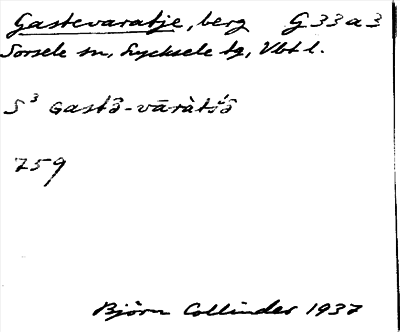 Gastevaratje, berg G 33 a 3
Sorsele sn, Lycksele tg, Vbtl.
S³ Gastə̂-vāràtśə̂
759
Björn Collinder 1937